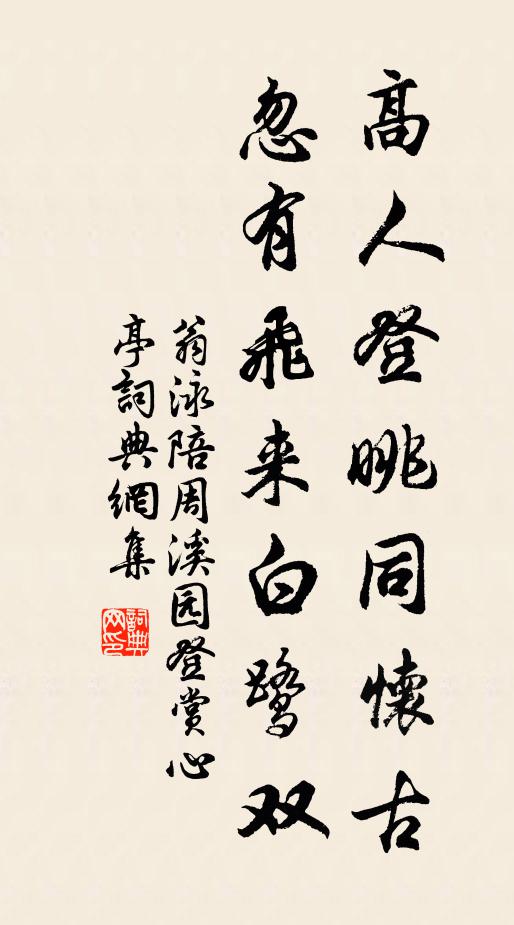 高人登眺同懷古
忽有飛来白鷺双
翁泳陪周溪园登赏心
亭詞典網集
詞典网印